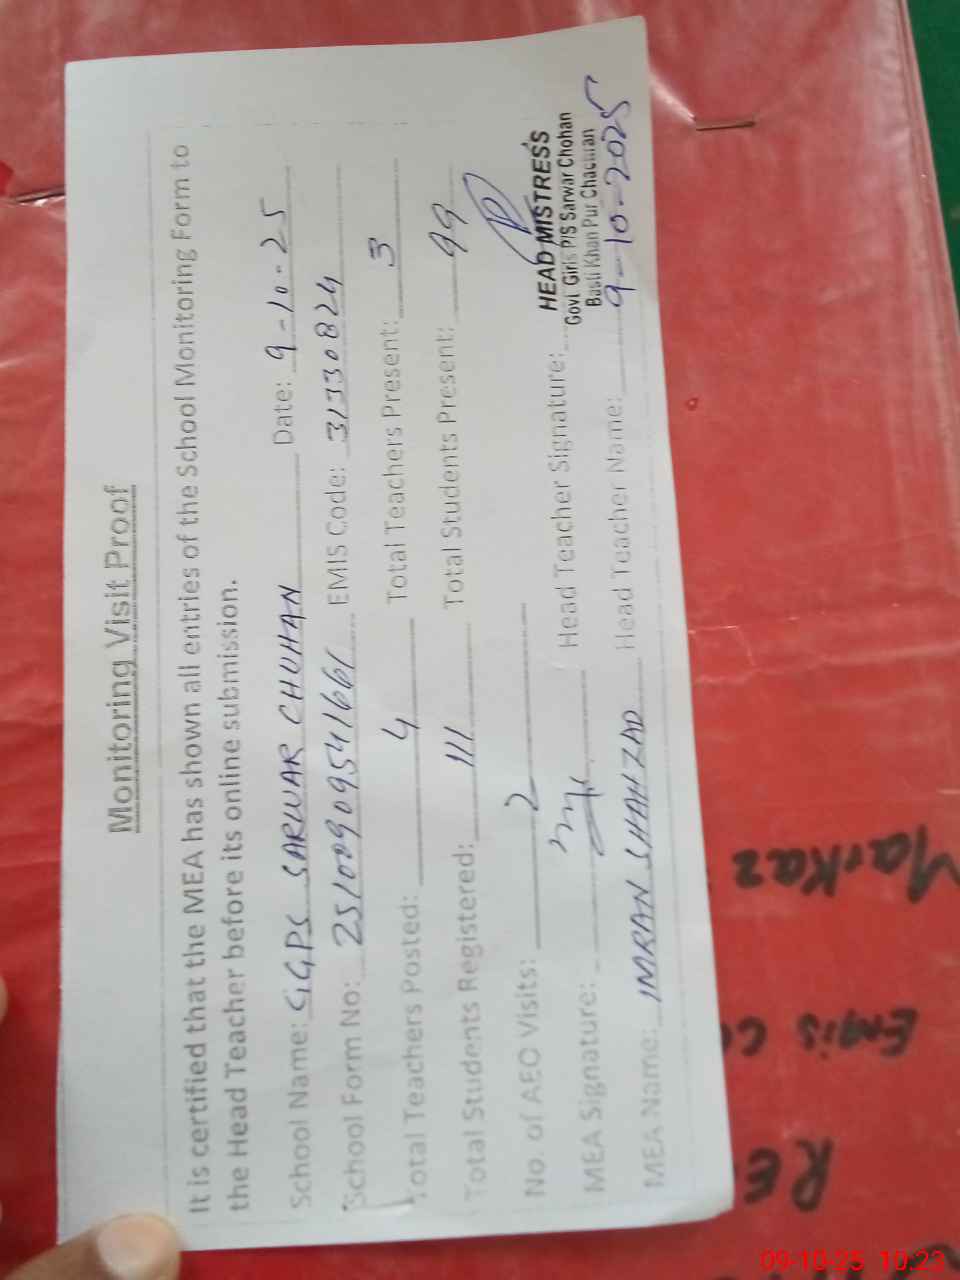 Monitoring Visit Proof
It is certified that the MEA has shown all entries of the School Monitoring Form to
the Head Teacher before its online submission.
School Name: GGPS SARWAR CHUHAN Date: 9-10-25
School Form No: 25100909541661 EMIS Code: 31330824
Total Teachers Posted: 4 Total Teachers Present: 3
Total Students Registered: 111 Total Students Present: 99
No. of AEO Visits: 2
MEA Signature: Head Teacher Signature:
HEAD MISTRESS
Govt Girls P/S Sarwar Chohan
Basti Khan Pur Chachran
MEA Name: IMRAN SHAHZAD Head Teacher Name: 9-10-2025
Markaz
Emis
09-10-25 10:23